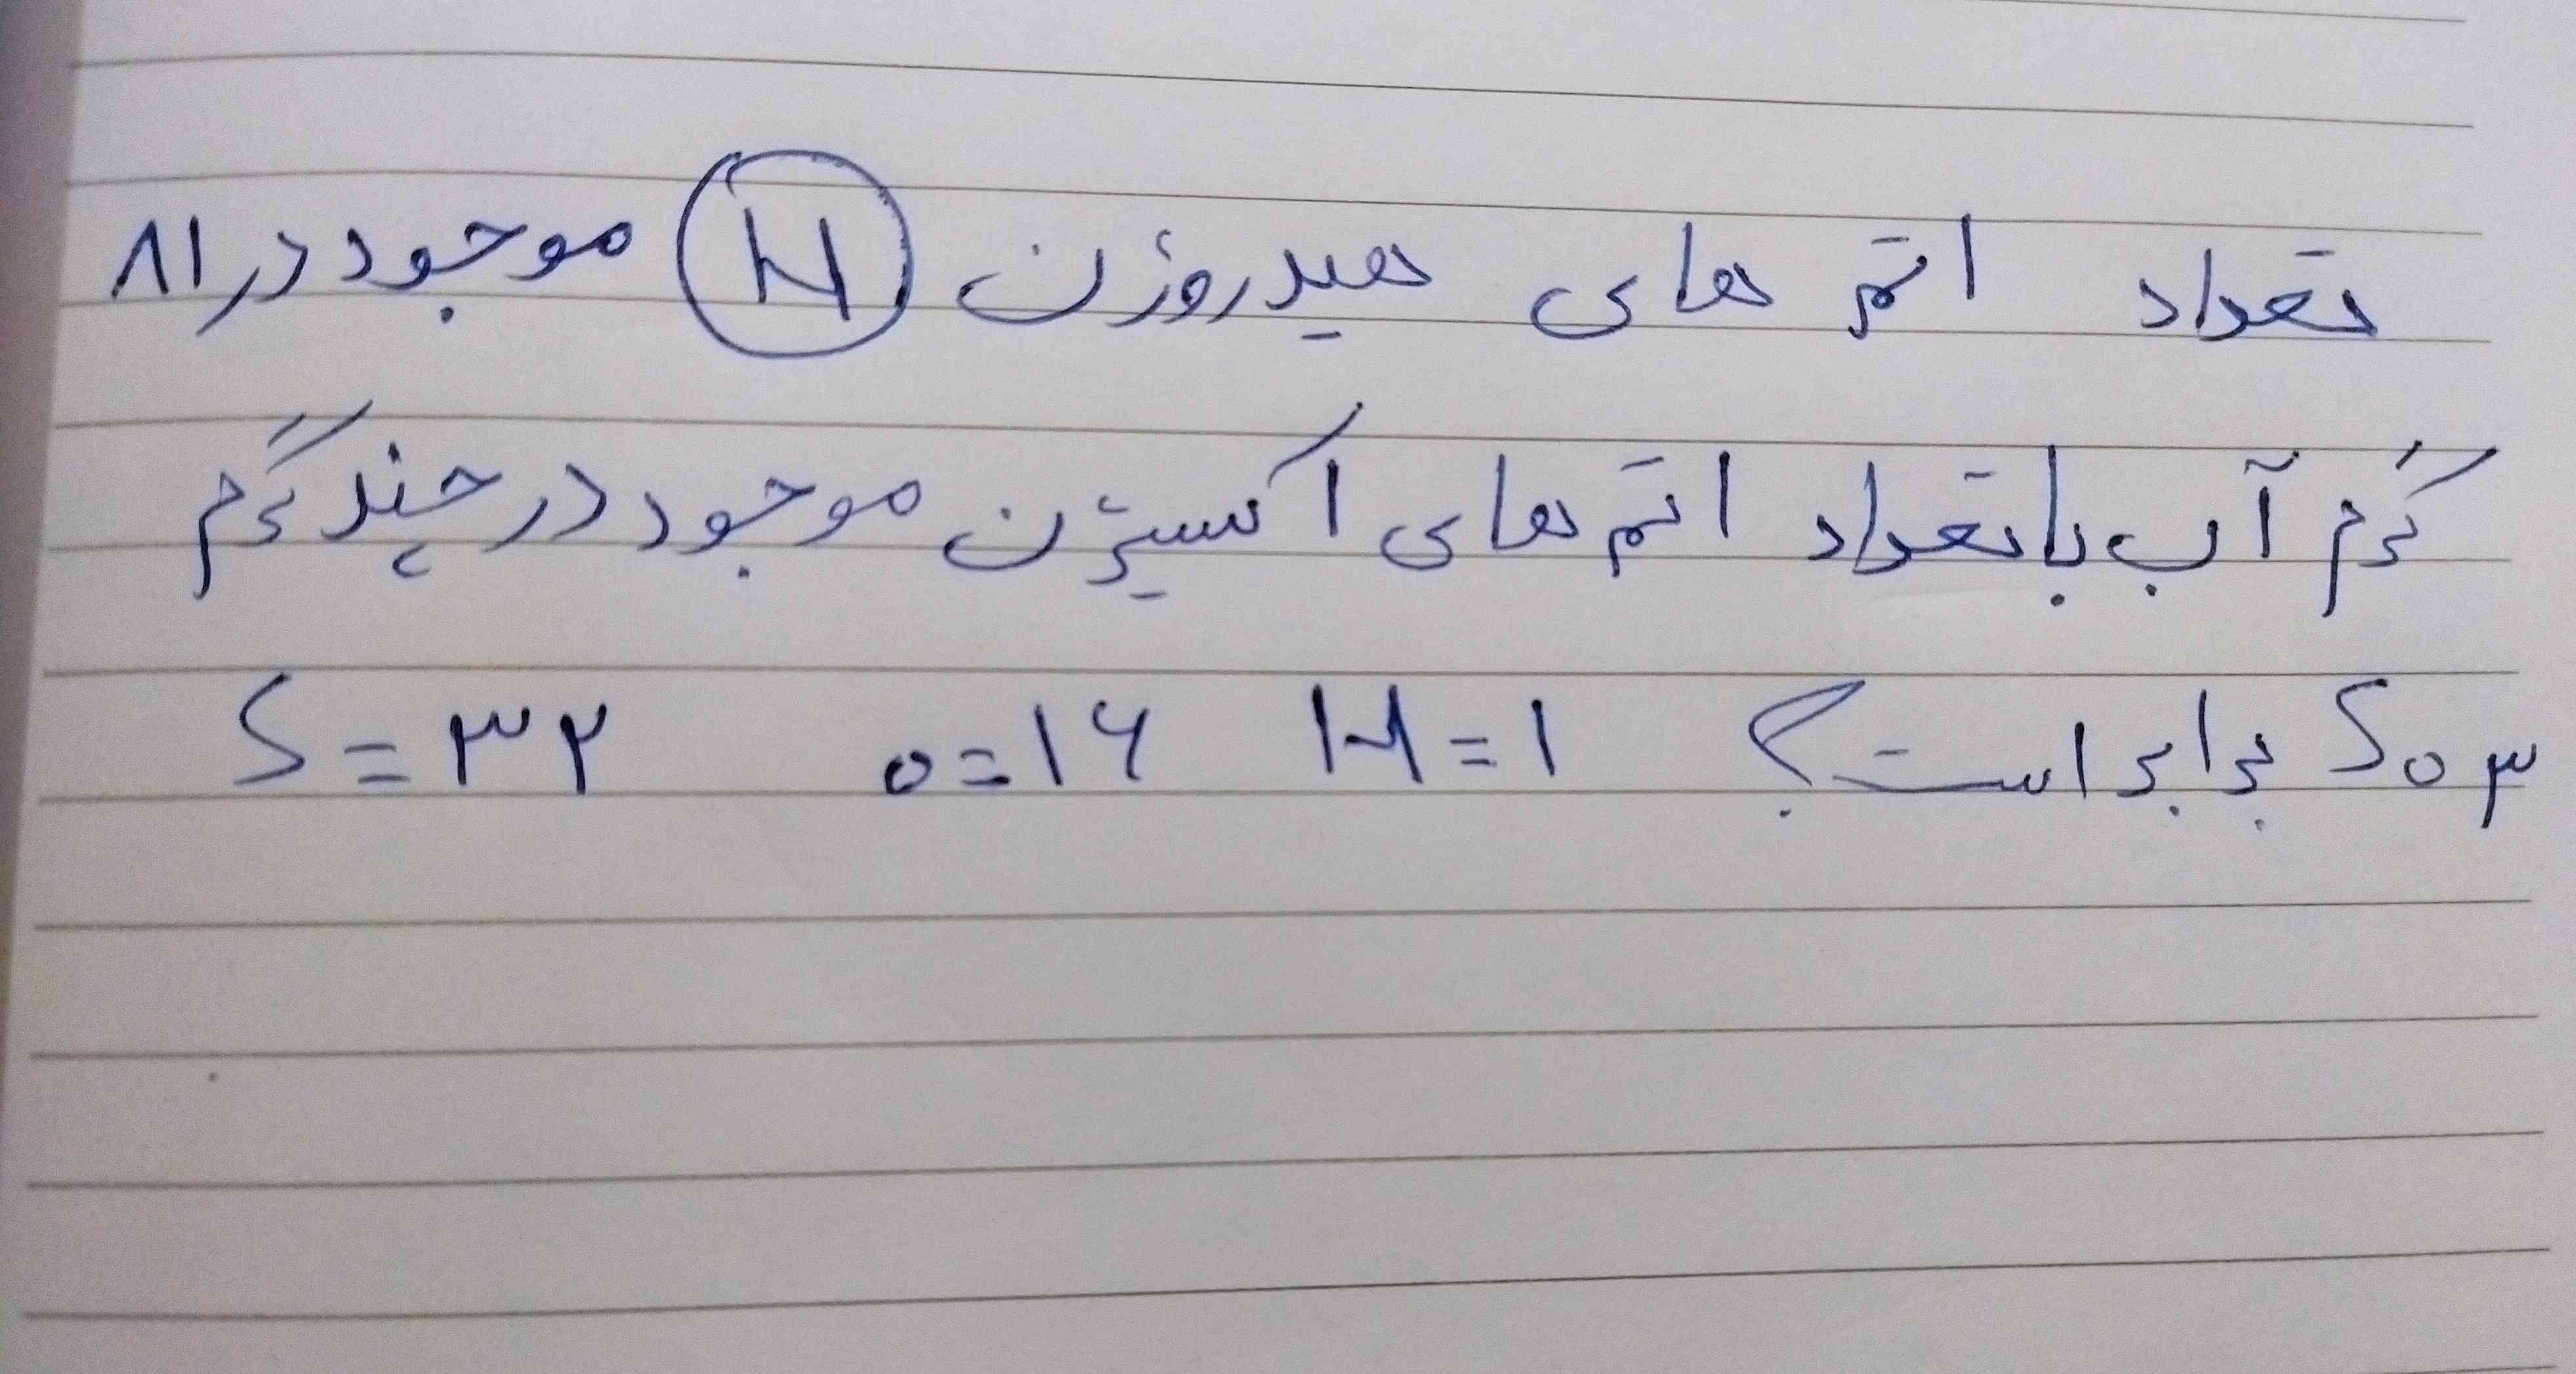 تعداد اتم های هیدروژن H موجود در ۸۱
گرم آب با تعداد اتم های اکسیژن موجود در چند گرم
SO۳ برابر است؟ H=۱ O=۱۶ S=۳۲